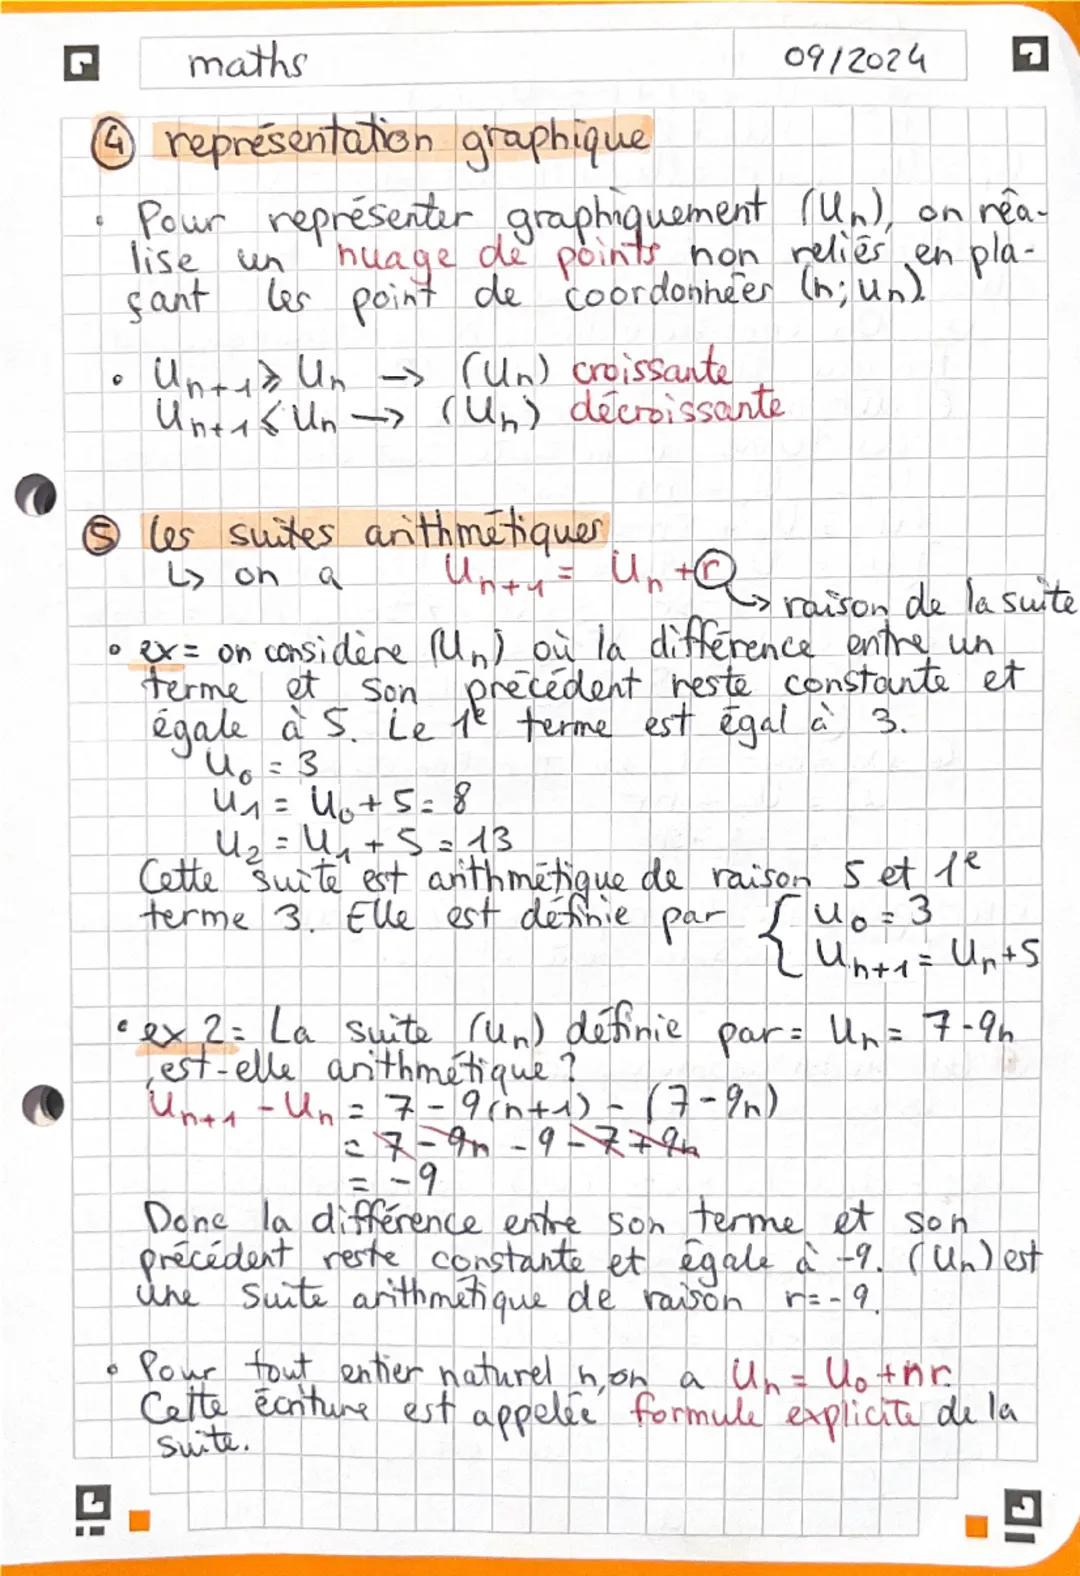 maths
09/2024
④ représentation graphique
• Pour représenter graphiquement (Un), on réa-
lise un nuage de points non reliés en pla-
çant les point de coordonnées (n; un).
• Un+1 ⩾ Un → (Un) croissante
Un+1 ⩽ Un → (Un) décroissante
⑤ les suites arithmétiques
↳ on a Un+1 = Un + r
→ raison de la suite
• ex = on considère (Un) où la différence entre un
terme et son précédent reste constante et
égale à 5. Le 1e terme est égal à 3.
U0 = 3
U1 = U0 + 5 = 8
U2 = U1 + 5 = 13
Cette suite est arithmétique de raison 5 et 1e
terme 3. Elle est définie par { U0 = 3
Un+1 = Un + 5
• ex 2 = La suite (un) définie par = Un = 7-9n
est-elle arithmétique ?
Un+1 - Un = 7 - 9(n+1) - (7-9n)
= 7 - 9n - 9 - 7 + 9n
= -9
Donc la différence entre son terme et son
précédent reste constante et égale à -9. (Un) est
une suite arithmétique de raison r=-9.
• Pour tout entier naturel n, on a Un = U0 + nr.
Cette écriture est appelée formule explicite de la
suite.